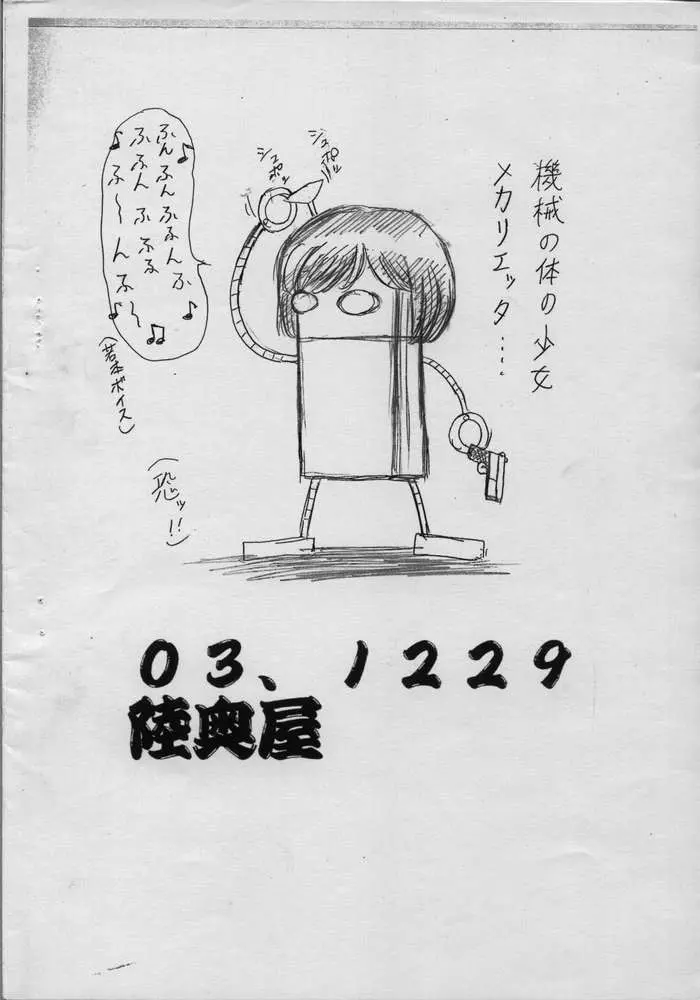 機械の体の少女
メカリエッタ……
ジュポッ
ジュポッ
ふんふんふるんふ
ふふんふふる
ふ〜んふ〜
(若本ボイス)
(恐ッ!!)
03、1229
陸奥屋